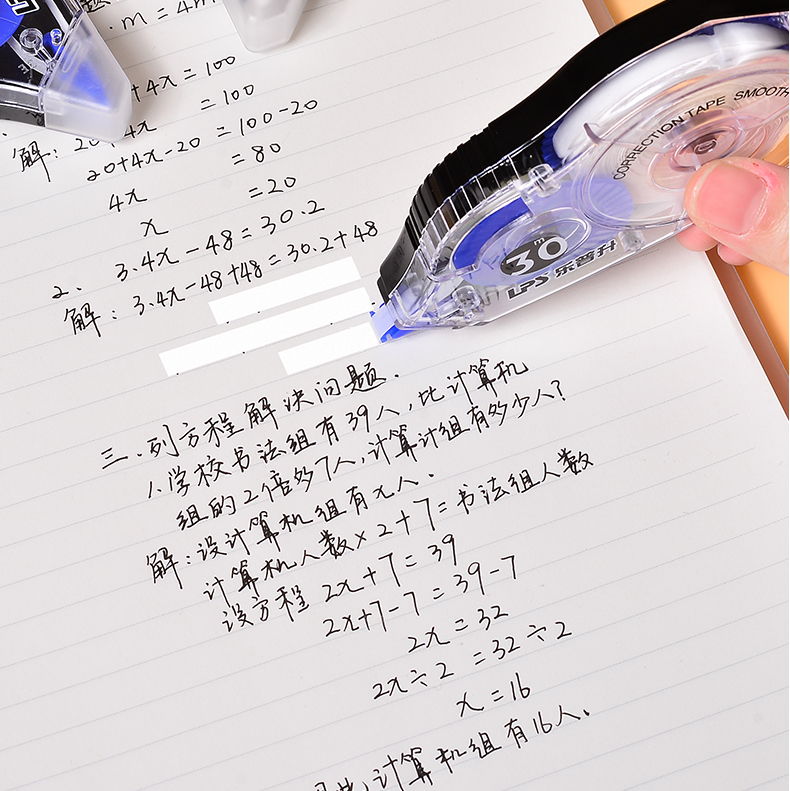 题
.m=4m
+4x=100
解：20+4x =100
20+4x-20 =100-20
4x =80
x =20
2. 3.4x-48=30.2
解：3.4x-48+48=30.2+48
三.列方程解决问题.
1.学校书法组有39人,比计算机
组的2倍多7人,计算计组有多少人?
解:设计算机组有x人.
计算机人数×2+7=书法组人数
设方程 2x+7=39
2x+7-7=39-7
2x=32
2x÷2=32÷2
x=16
计算机组有16人.
CORRECTION TAPE SMOOTH
30m
LPS 乐普升